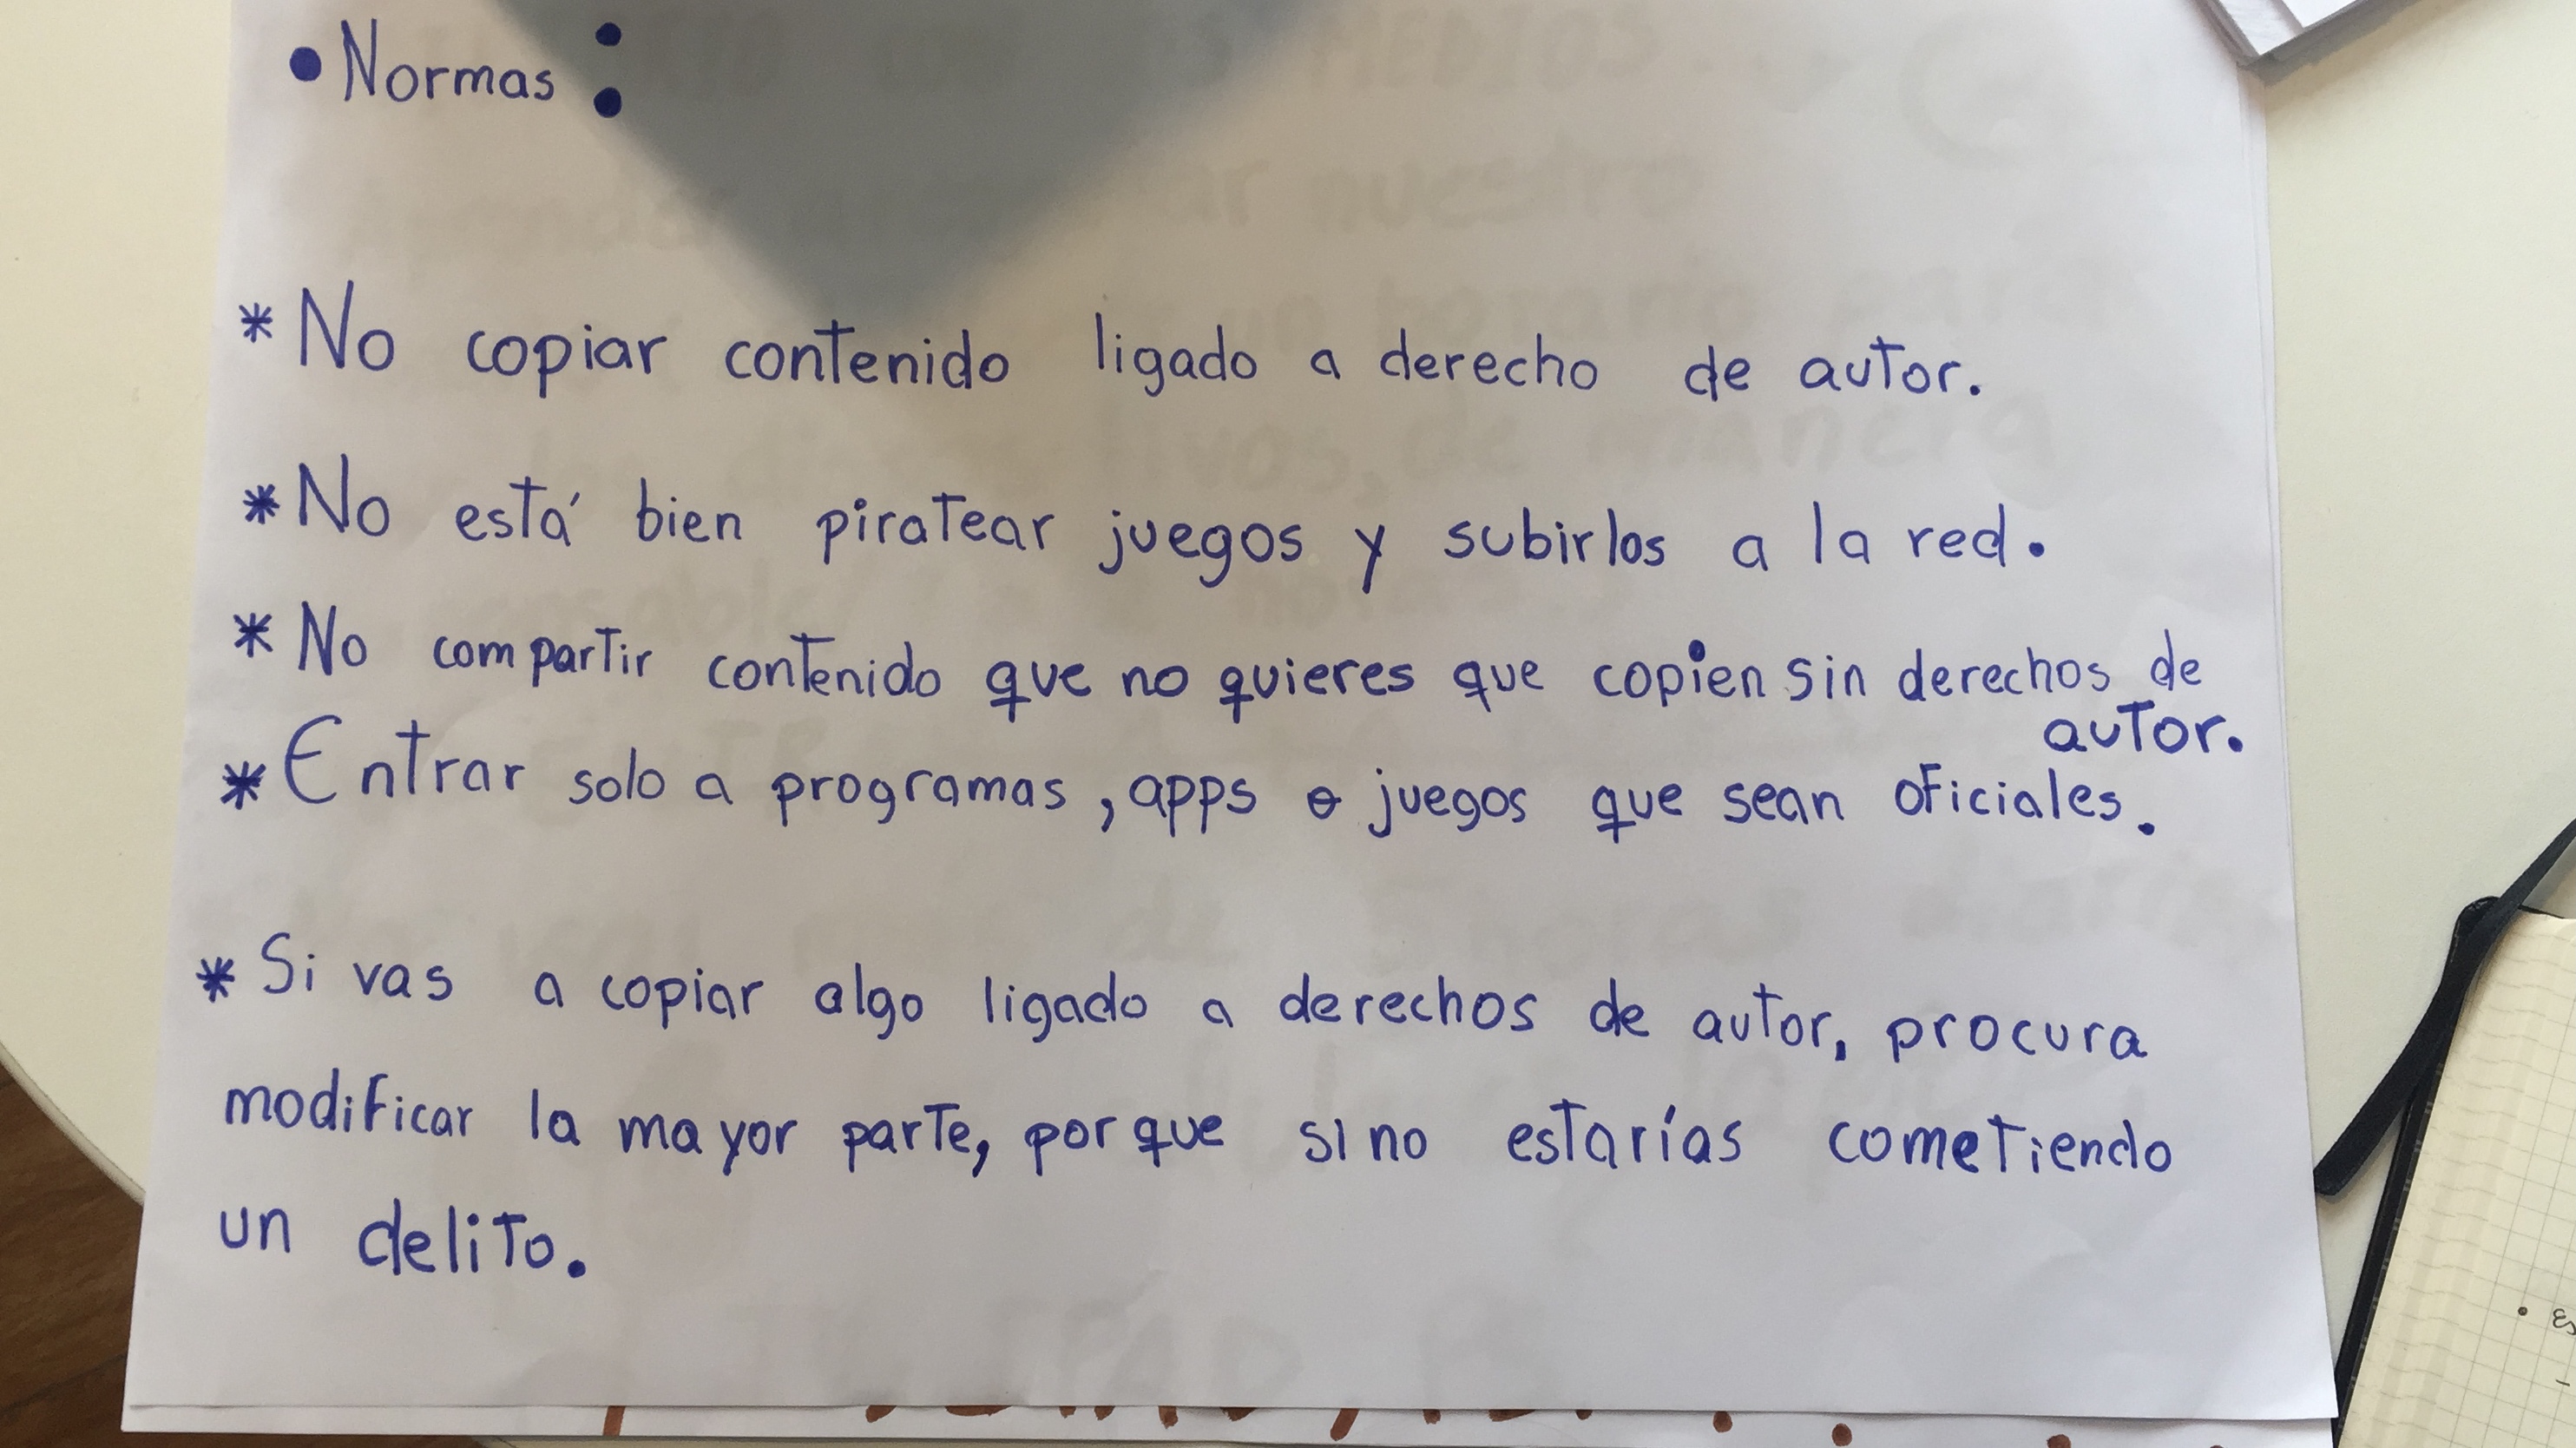 • Normas :
* No copiar contenido ligado a derecho de autor.
* No está bien piratear juegos y subirlos a la red.
* No compartir contenido que no quieres que copien sin derechos de
autor.
* Entrar solo a programas, apps o juegos que sean oficiales.
* Si vas a copiar algo ligado a derechos de autor, procura
modificar la mayor parte, porque sino estarías cometiendo
un delito.